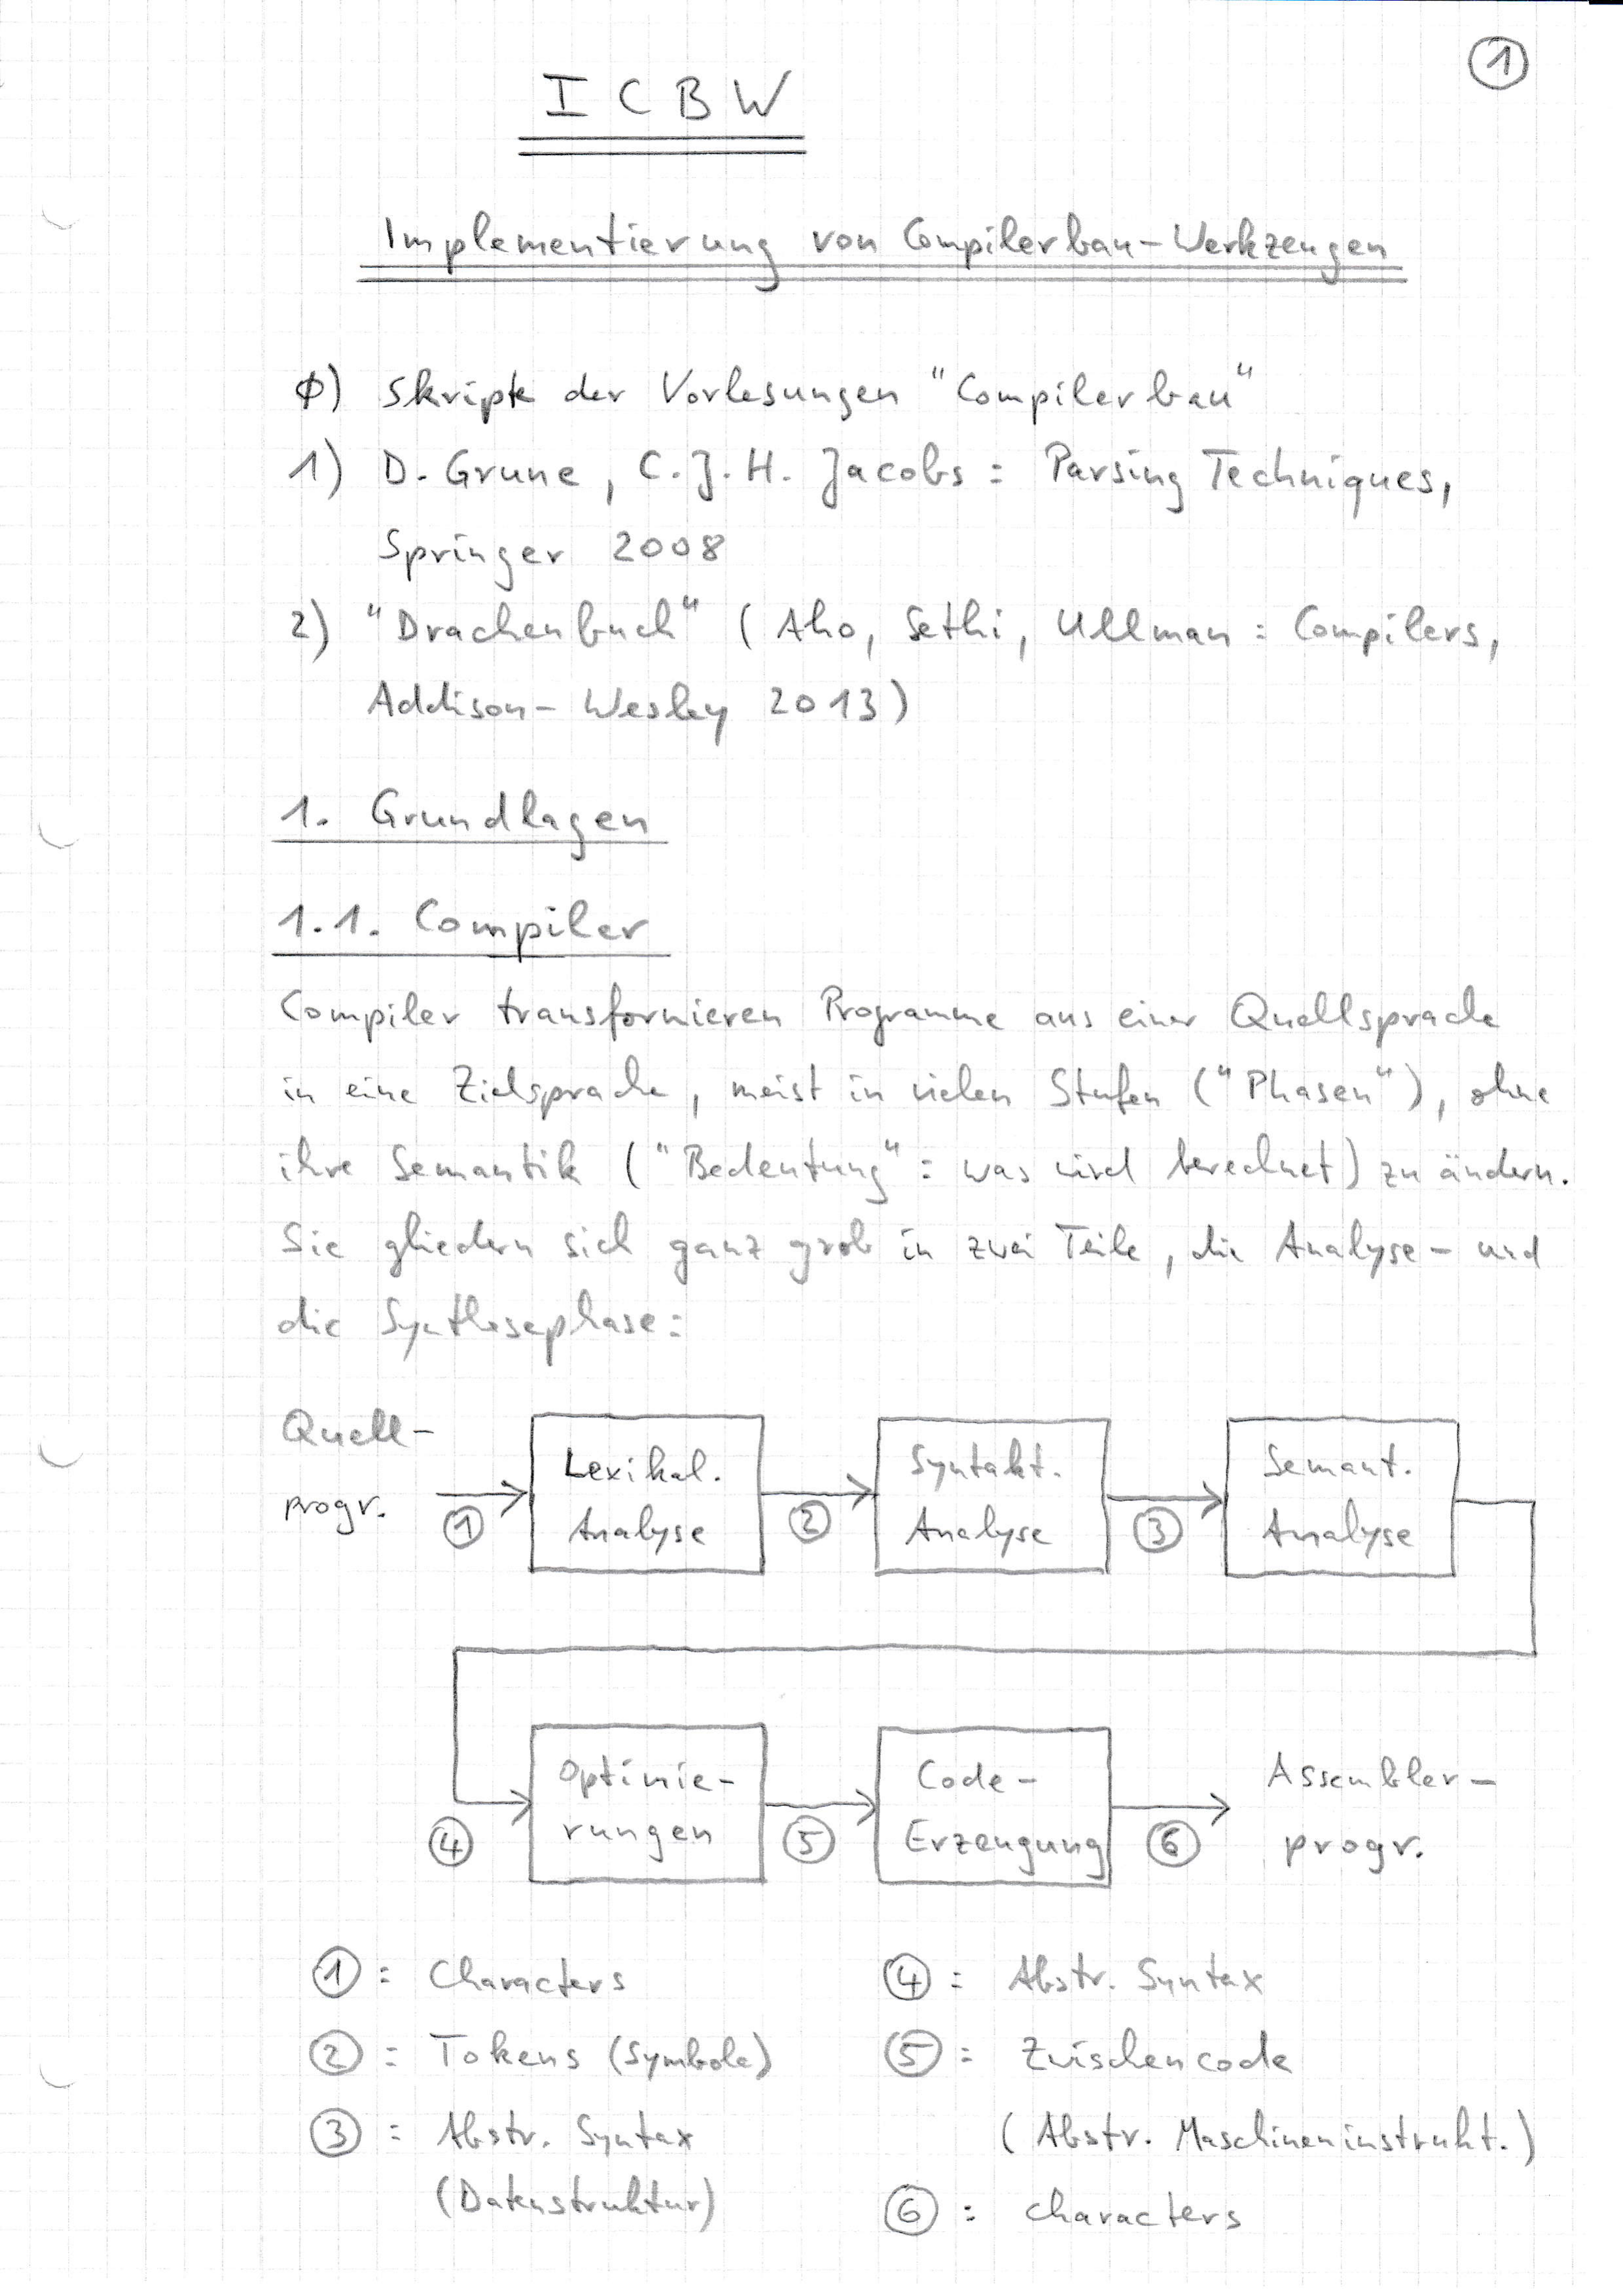 ①
ICBW
Implementierung von Compilerbau-Werkzeugen
0) Skripte der Vorlesungen "Compilerbau"
1) D. Grune, C.J.H. Jacobs: Parsing Techniques,
Springer 2008
2) "Drachenbuch" (Aho, Sethi, Ullman: Compilers,
Addison-Wesley 2013)
1. Grundlagen
1.1. Compiler
Compiler transformieren Programme aus einer Quellsprache
in eine Zielsprache, meist in vielen Stufen ("Phasen"), ohne
ihre Semantik ("Bedeutung": was wird berechnet) zu ändern.
Sie gliedern sich ganz grob in zwei Teile, die Analyse- und
die Synthesephase:
Quell-
progr.
①
Lexikal.
Analyse
②
Syntakt.
Analyse
③
Semant.
Analyse
④
Optimie-
rungen
⑤
Code-
Erzeugung
⑥
Assembler-
progr.
①: Characters
②: Tokens (Symbole)
③: Abstr. Syntax
(Datenstruktur)
④: Abstr. Syntax
⑤: Zwischencode
(Abstr. Maschineninstrukt.)
⑥: characters